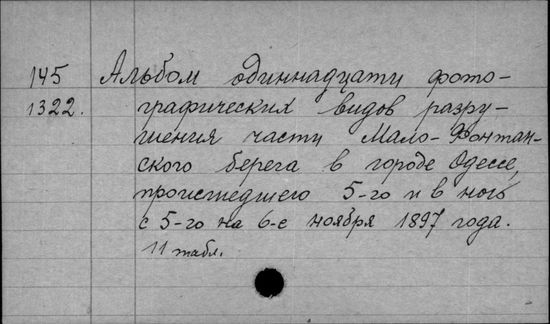 145 Альбом одиннадцати фото-
1322. графических видов разру-
шения части Мало-Фонтан-
ского берега в городе Одессе,
происшедшего 5-го и в ночь
с 5-го на 6-е ноября 1897 года.
11 табл.